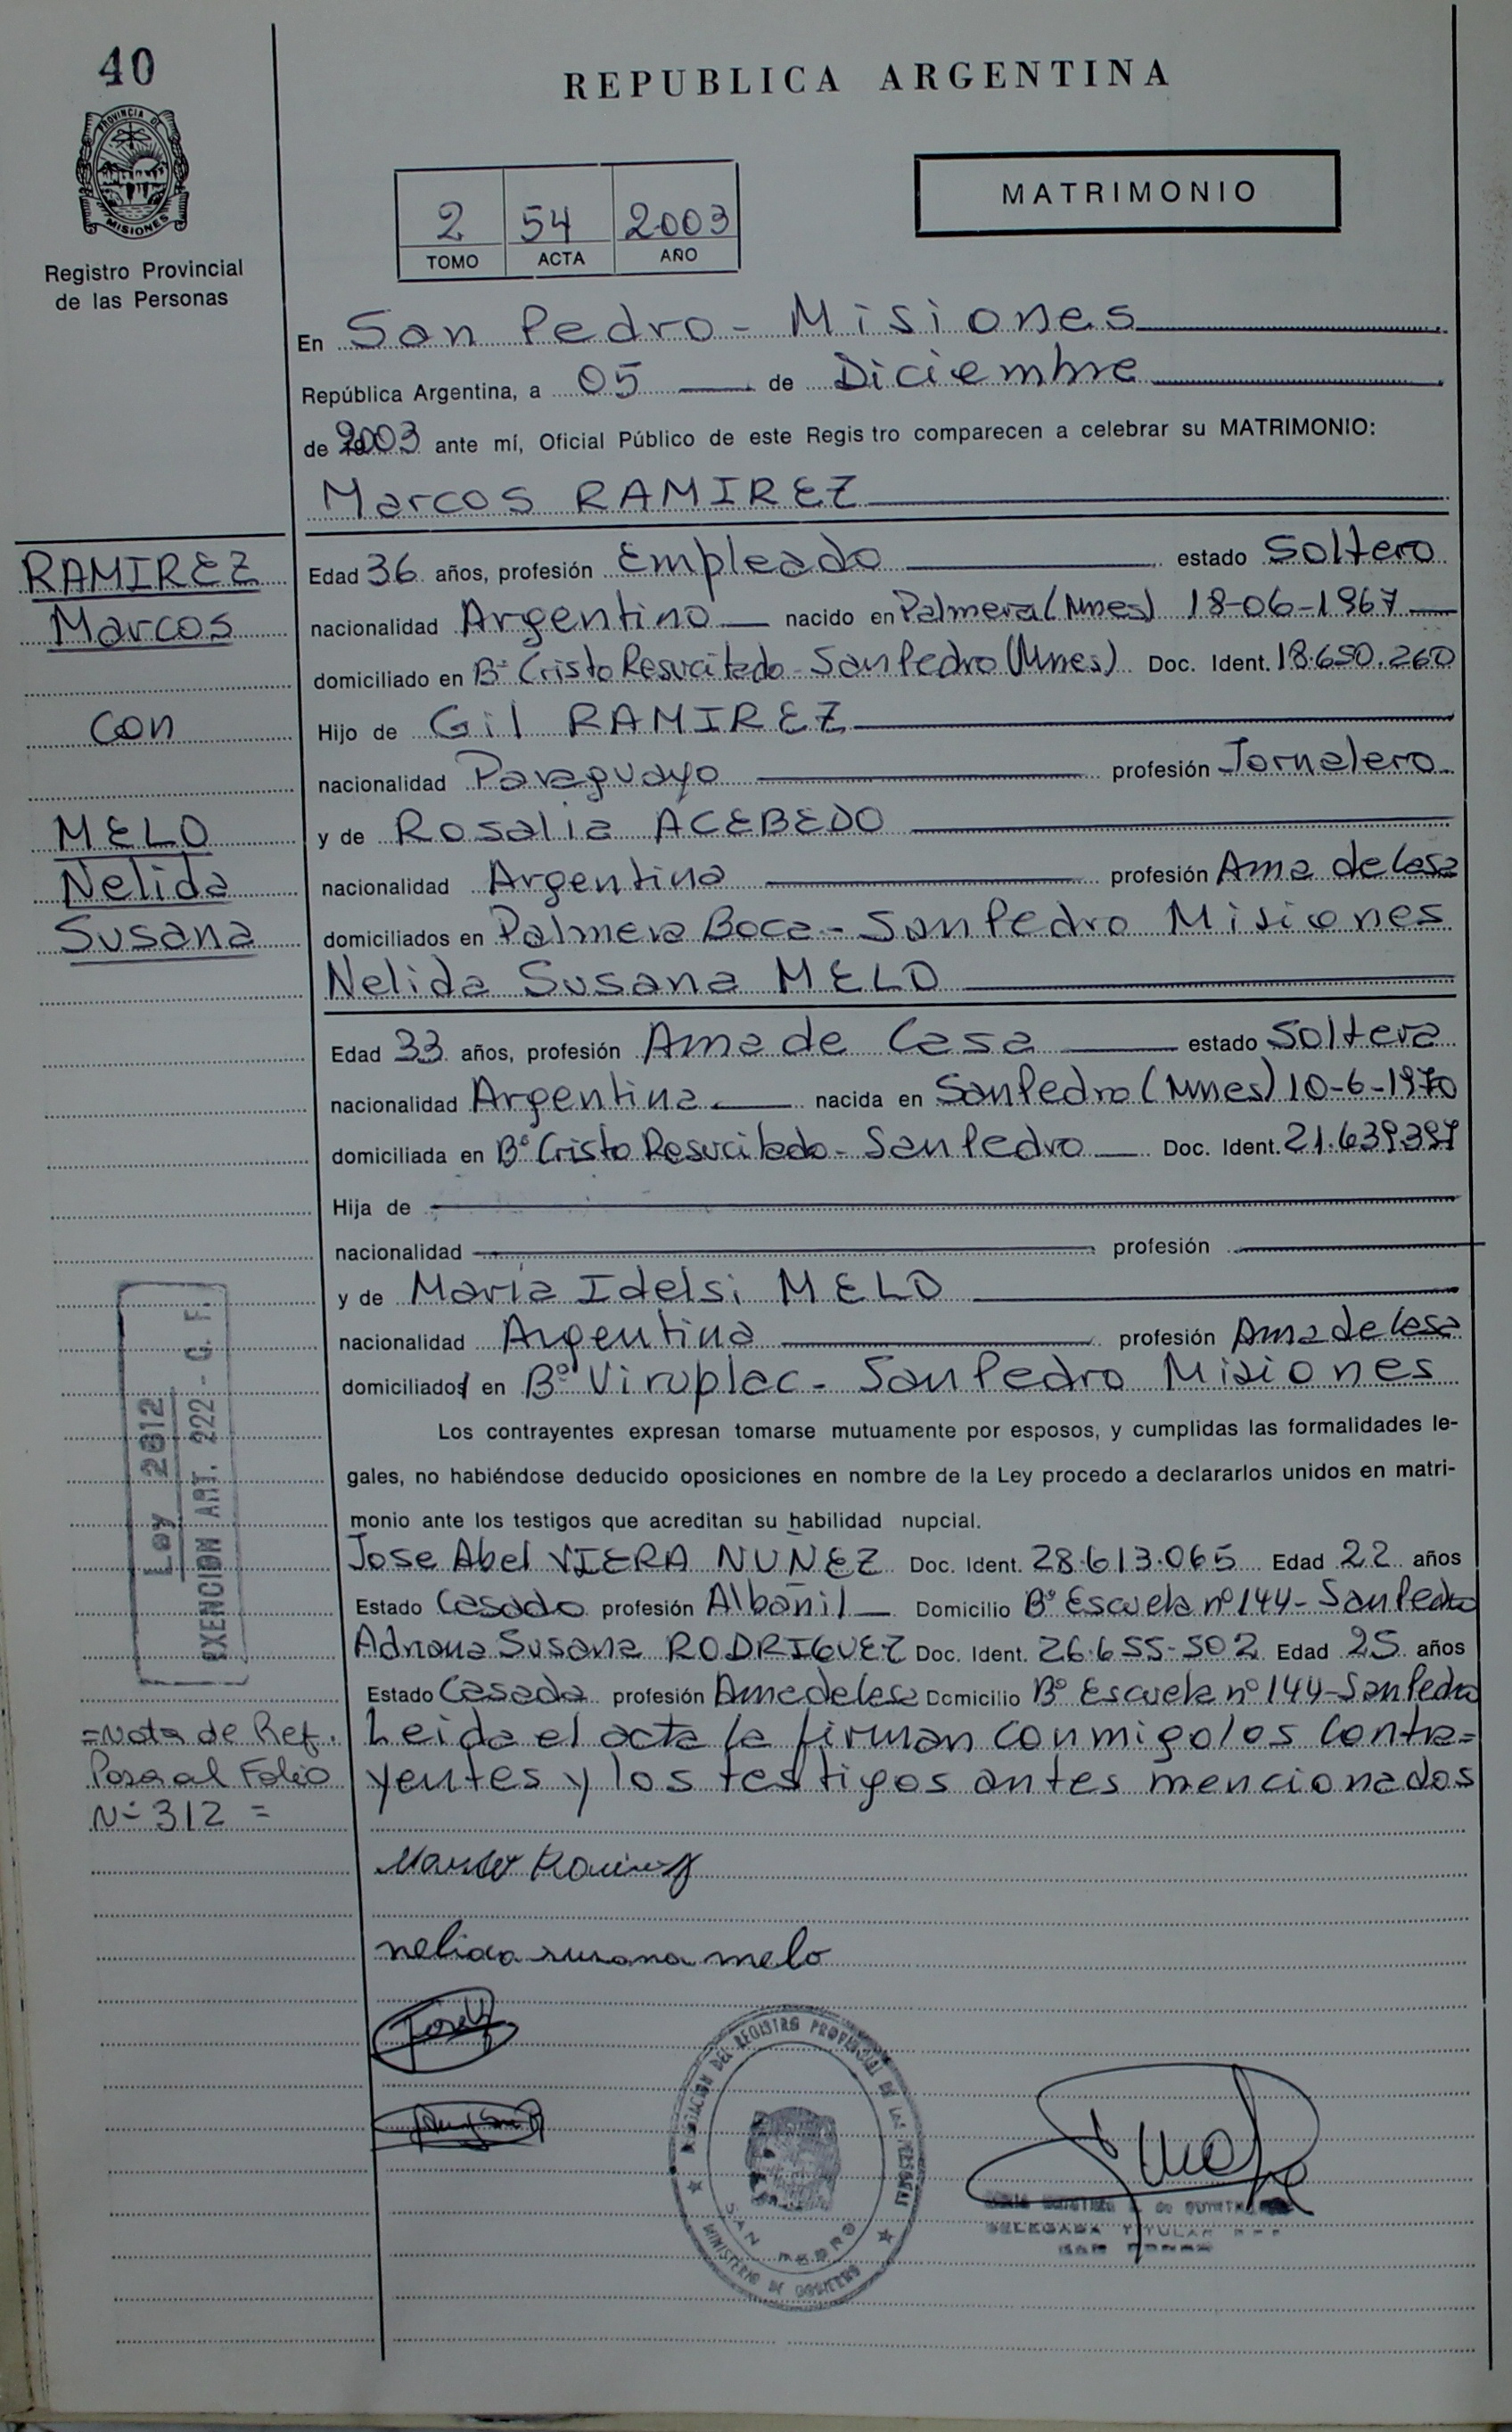 40
REPUBLICA ARGENTINA
PROVINCIA DE
MISIONES
Registro Provincial
de las Personas
2 54 2003
TOMO ACTA AÑO
MATRIMONIO
En San Pedro - Misiones
República Argentina, a 05 de Diciembre
de 2003 ante mí, Oficial Público de este Regis tro comparecen a celebrar su MATRIMONIO:
Marcos RAMIREZ
RAMIREZ
Marcos
con
MELO
Nelida
Susana
Edad 36 años, profesión Empleado estado Soltero
nacionalidad Argentino nacido en Palmera (Mnes) 18-06-1967
domiciliado en Bº Cristo Resucitado - San Pedro (Mnes) Doc. Ident. 18.650.260
Hijo de Gil RAMIREZ
nacionalidad Paraguayo profesión Jornalero
y de Rosalia ACEBEDO
nacionalidad Argentina profesión Ama de Casa
domiciliados en Palmera Boca - San Pedro Misiones
Nelida Susana MELO
Edad 33 años, profesión Ama de Casa estado Soltera
nacionalidad Argentina nacida en San Pedro (Mnes) 10-6-1970
domiciliada en Bº Cristo Resucitado - San Pedro Doc. Ident. 21.639.397
Hija de
nacionalidad profesión
y de Maria Idelsi MELO
nacionalidad Argentina profesión Ama de Casa
domiciliados en Bº Viruplac - San Pedro Misiones
Los contrayentes expresan tomarse mutuamente por esposos, y cumplidas las formalidades le-
gales, no habiéndose deducido oposiciones en nombre de la Ley procedo a declararlos unidos en matri-
monio ante los testigos que acreditan su habilidad nupcial.
Jose Abel VIERA NUÑEZ Doc. Ident. 28.613.065 Edad 22 años
Estado Casado profesión Albañil Domicilio Bº Escuela nº 144 - San Pedro
Adriana Susana RODRIGUEZ Doc. Ident. 26.655-502 Edad 25 años
Estado Casada profesión Ama de Casa Domicilio Bº Escuela nº 144 - San Pedro
Leida el acta la firman conmigo los contra=
yentes y los testigos antes mencionados
Ley 2812
EXENCION ART. 222 - C. F.
=Nota de Ref.
Pasa al Folio
Nº 312 =
Marcos Ramirez
nelida susana melo
DEL REGISTRO PROVINCIAL DE LAS PERSONAS
SAN PEDRO
MINISTERIO DE GOBIERNO
DELEGADA TITULAR
SAN PEDRO